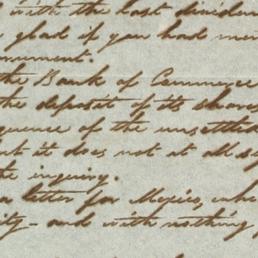 with the last dividend
glad if you had
the Bank of Commerce
the deposit of its shares
quence of the unsettled
but it does not at all
the inquiry.
a letter for Mexico, whe
ity - and with nothing